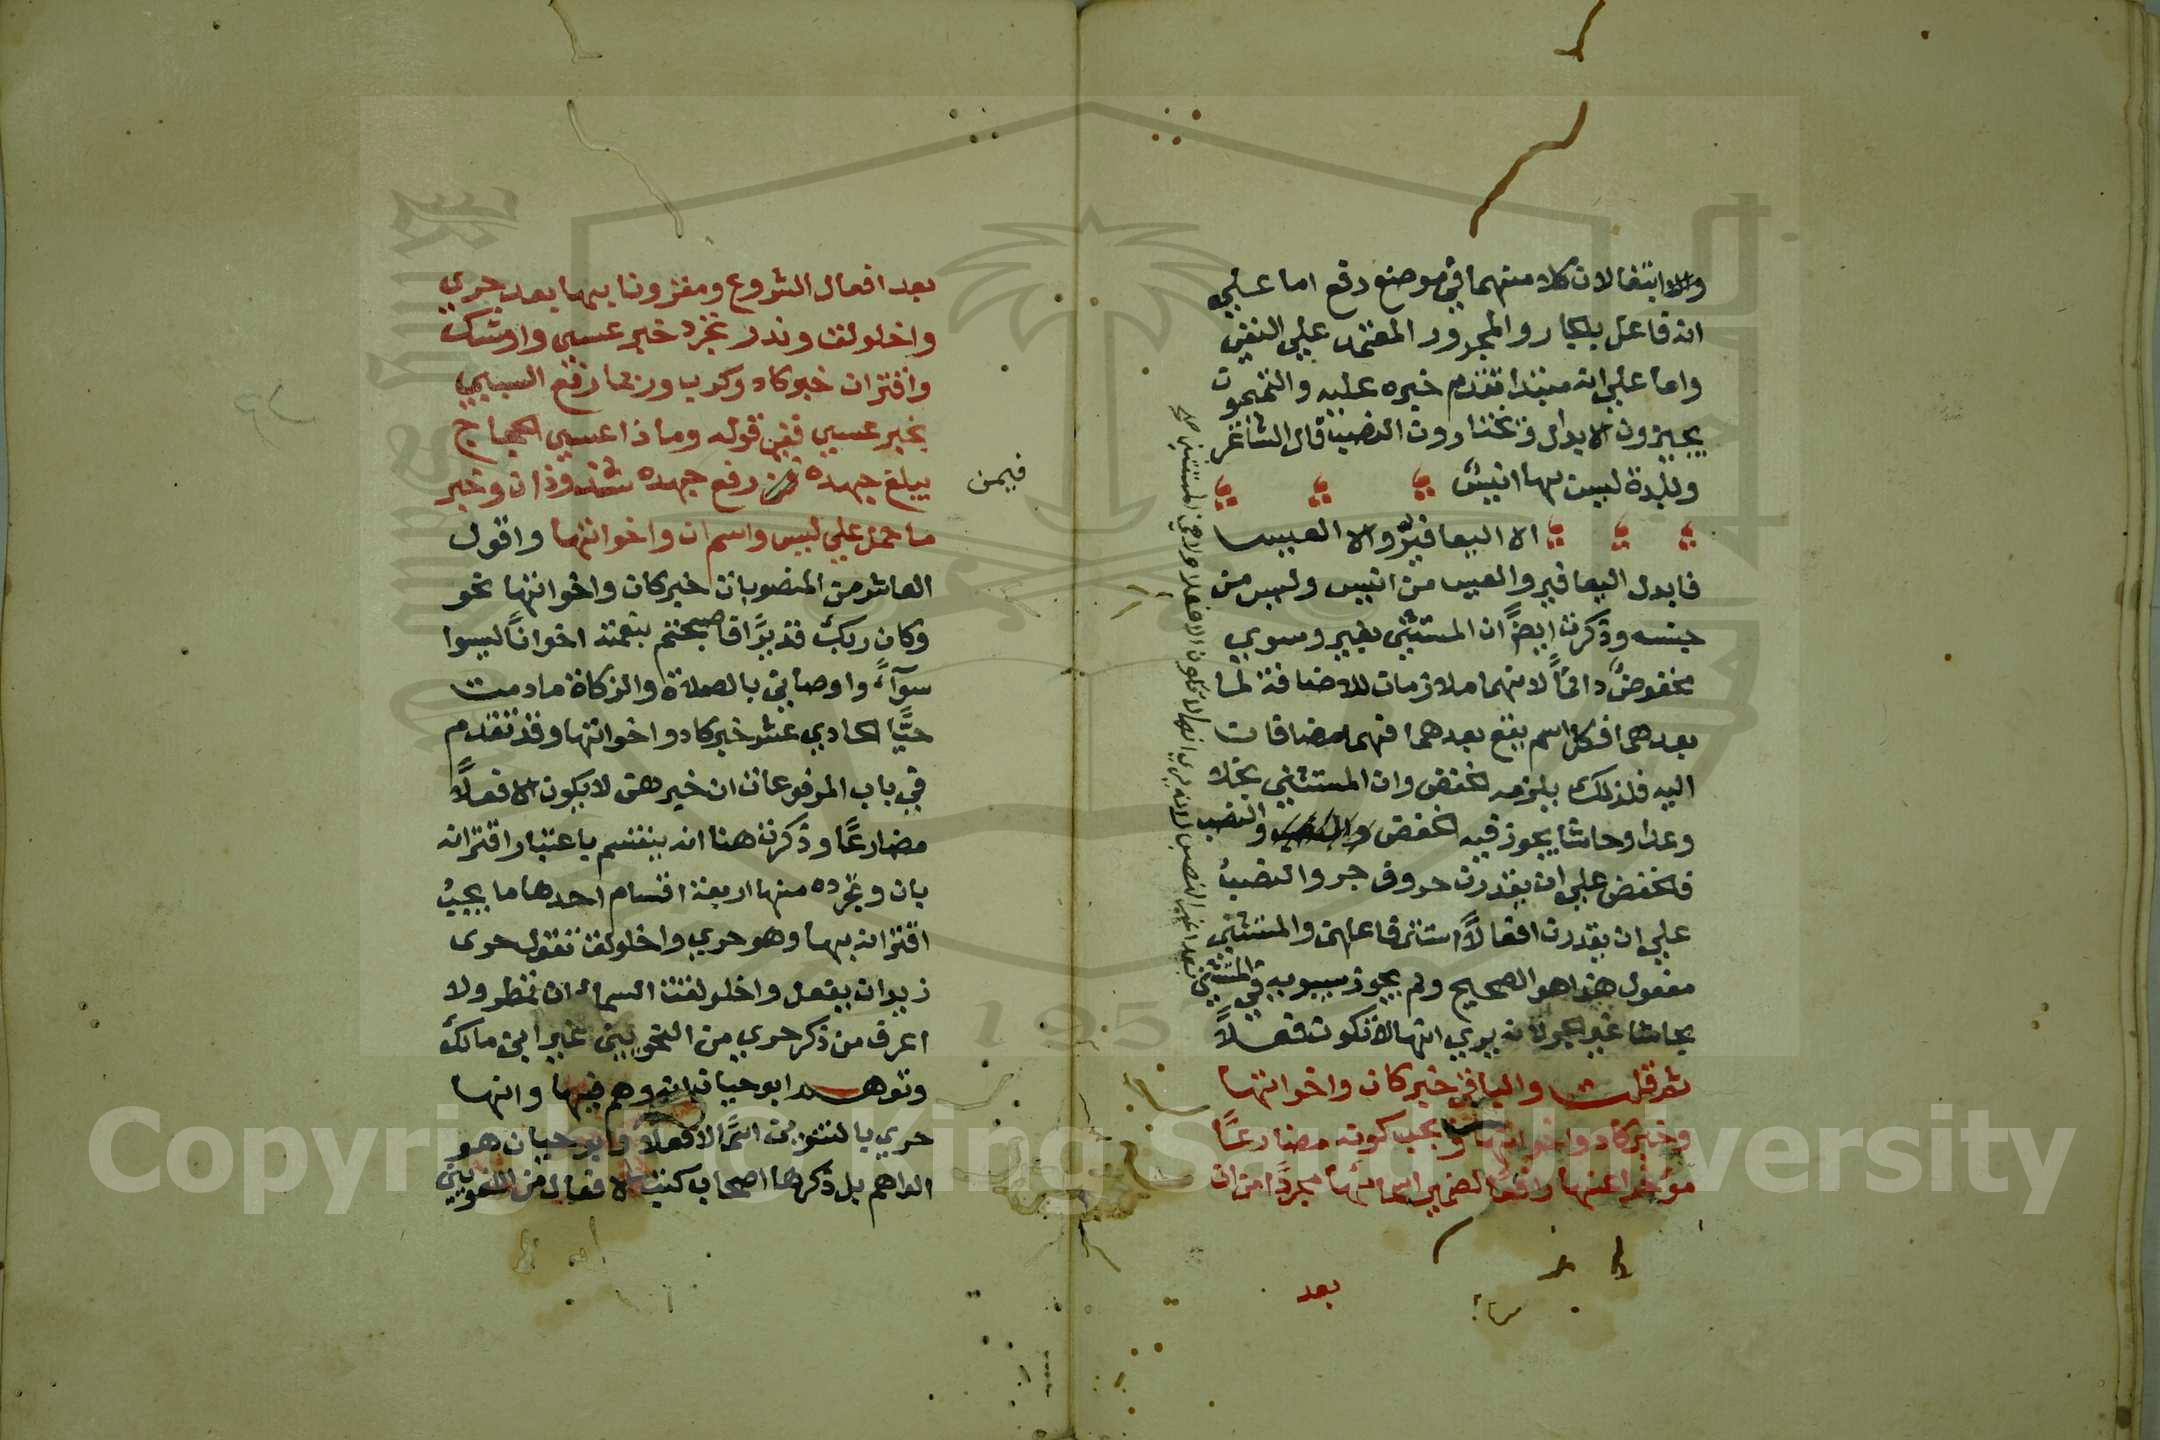 والا ابتغا لان كلا منهما في موضع رفع اما علي
انه فاعل بالجار والمجرور المعتمد علي النفي
واما علي انه مبتدا تقدم خبره عليه والتميميون
يجيزون الابدال ويختارون النصب قال الشاعر
وبلدة ليس بها انيس
الا اليعافير والا العيسا
فابدل اليعافير والعيس من انيس وليس من
جنسه وذكرت ايضًا ان المستثني بغير وسوي
مخفوض دائمًا لانهما ملازمان للاضافة لما
بعدهما فكل اسم يقع بعدهما فهما مضافات
اليه فلذلك يلزمه الخفض وان المستثني بخلا
وعدا وحاشا يجوز فيه الخفض والنصب
فالخفض علي ان يقدرن حروف جر والنصب
علي ان يقدرن افعالًا استتر فاعلهن والمستثني
مفعول هذا هو الصحيح ولم يجوز سيبويه في المستثني
بحاشا غير الجر لانه يري انها لا تكون فعلًا
ثم قلت والباقي خبر كان واخواتها
وخبر كاد واخواتها ويجب كونه مضارعًا
موخرا عنها رافعًا لضمير اسمائها مجردًا من ان
بعد
بعد افعال الشروع ومقرونا بها بعد حري
واخلولق وندر تجرد خبر عسي واوشك
واقتران خبر كاد وكرب وربما رفع السببي
بخبر عسي ففي قوله وماذا عسي الحجاج
يبلغ جهده رفع جهده شذوذان وخبر
فيمن
ما حمل علي ليس واسم ان واخواتها واقول
العاشر من المنصوبات خبر كان واخواتها نحو
وكان ربك قديرًا فاصبحتم بنعمته اخوانًا ليسوا
سوآء واوصاني بالصلاة والزكاة ما دمت
حيًّا الحادي عشر خبر كاد واخواتها وقد تقدم
في باب المرفوعات ان خبرهن لا يكون الا فعلًا
مضارعًا وذكرت هنا انه ينقسم باعتبار اقترانه
بان وتجرده منها اربعة اقسام احدها ما يجب
اقترانه بها وهو حري واخلولق تقول حرى
زيد ان يفعل واخلولقت السماء ان تمطر ولا
اعرف من ذكر حري من النحويين غير ابن مالك
وتوهم ابو حيان انه وهم فيها وانها
حري بالتنوين اسمًا لا فعلًا وابو حيان هو
الواهم بل ذكرها اصحاب كتب الافعال من اللغويين
Copyright © King Saud University
1957